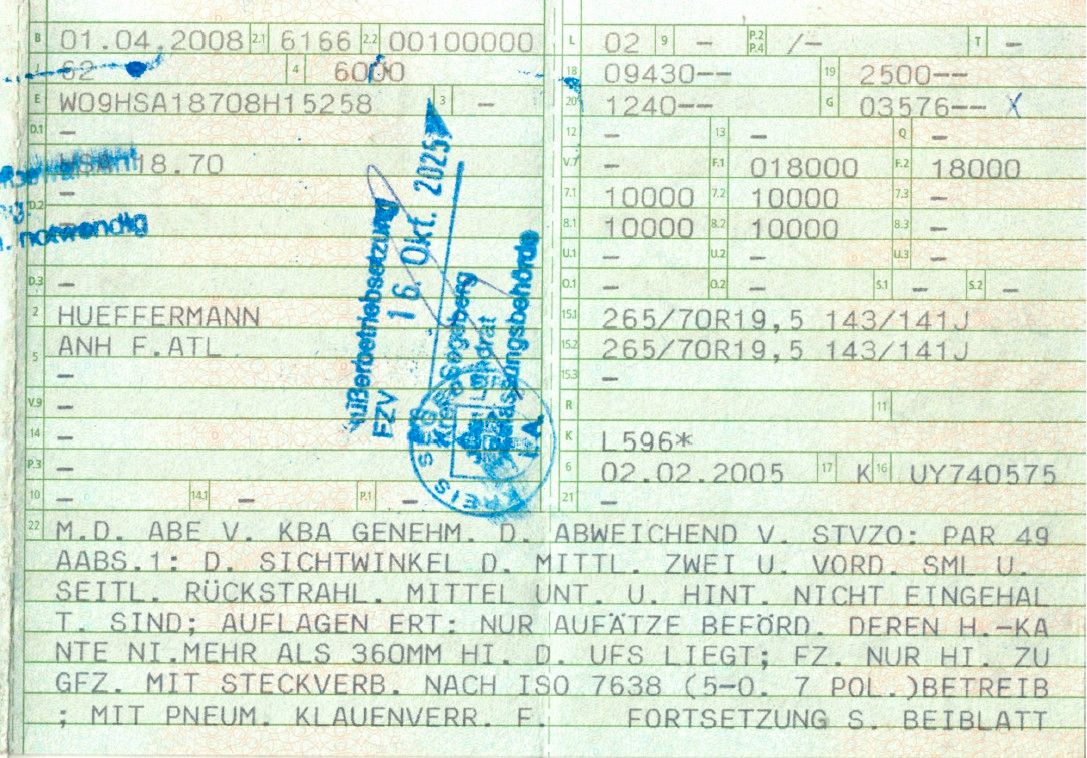 B 01.04.2008 2.1 6166 2.2 00100000
J 62 4 6000
E W09HSA18708H15258 3 –
D.1 –
HSA 18.70
D.2 –
–
notwendig
–
D.3 –
2 HUEFFERMANN
5 ANH F.ATL
–
V.9 –
14 –
P.3 –
10 – 14.1 – P.1 –
Außerbetriebsetzung
FZV
16. Okt. 2025
Kreis Segeberg
Landrat
Zulassungsbehörde
I.A.
KREIS SEGEBERG
L 02 9 – P.2 P.4 /– T –
18 09430–– 19 2500––
20 1240–– G 03576–– X
12 – 13 – Q –
V.7 – F.1 018000 F.2 18000
7.1 10000 7.2 10000 7.3 –
8.1 10000 8.2 10000 8.3 –
U.1 – U.2 – U.3 –
O.1 – O.2 – S.1 – S.2 –
15.1 265/70R19,5 143/141J
15.2 265/70R19,5 143/141J
15.3 –
R 11
K L596*
6 02.02.2005 17 K 16 UY740575
21 –
22 M.D. ABE V. KBA GENEHM. D. ABWEICHEND V. STVZO: PAR 49
AABS.1: D. SICHTWINKEL D. MITTL. ZWEI U. VORD. SML U.
SEITL. RÜCKSTRAHL. MITTEL UNT. U. HINT. NICHT EINGEHAL
T. SIND; AUFLAGEN ERT: NUR AUFÄTZE BEFÖRD. DEREN H.-KA
NTE NI.MEHR ALS 360MM HI. D. UFS LIEGT; FZ. NUR HI. ZU
GFZ. MIT STECKVERB. NACH ISO 7638 (5-O. 7 POL.)BETREIB
; MIT PNEUM. KLAUENVERR. F. FORTSETZUNG S. BEIBLATT